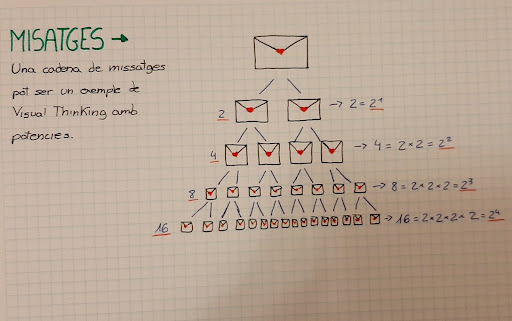 MISATGES →
Una cadena de missatges
pot ser un exemple de
Visual Thinking amb
potencies.
2 → 2 = 2¹
4 → 4 = 2 × 2 = 2²
8 → 8 = 2 × 2 × 2 = 2³
16 → 16 = 2 × 2 × 2 × 2 = 2⁴